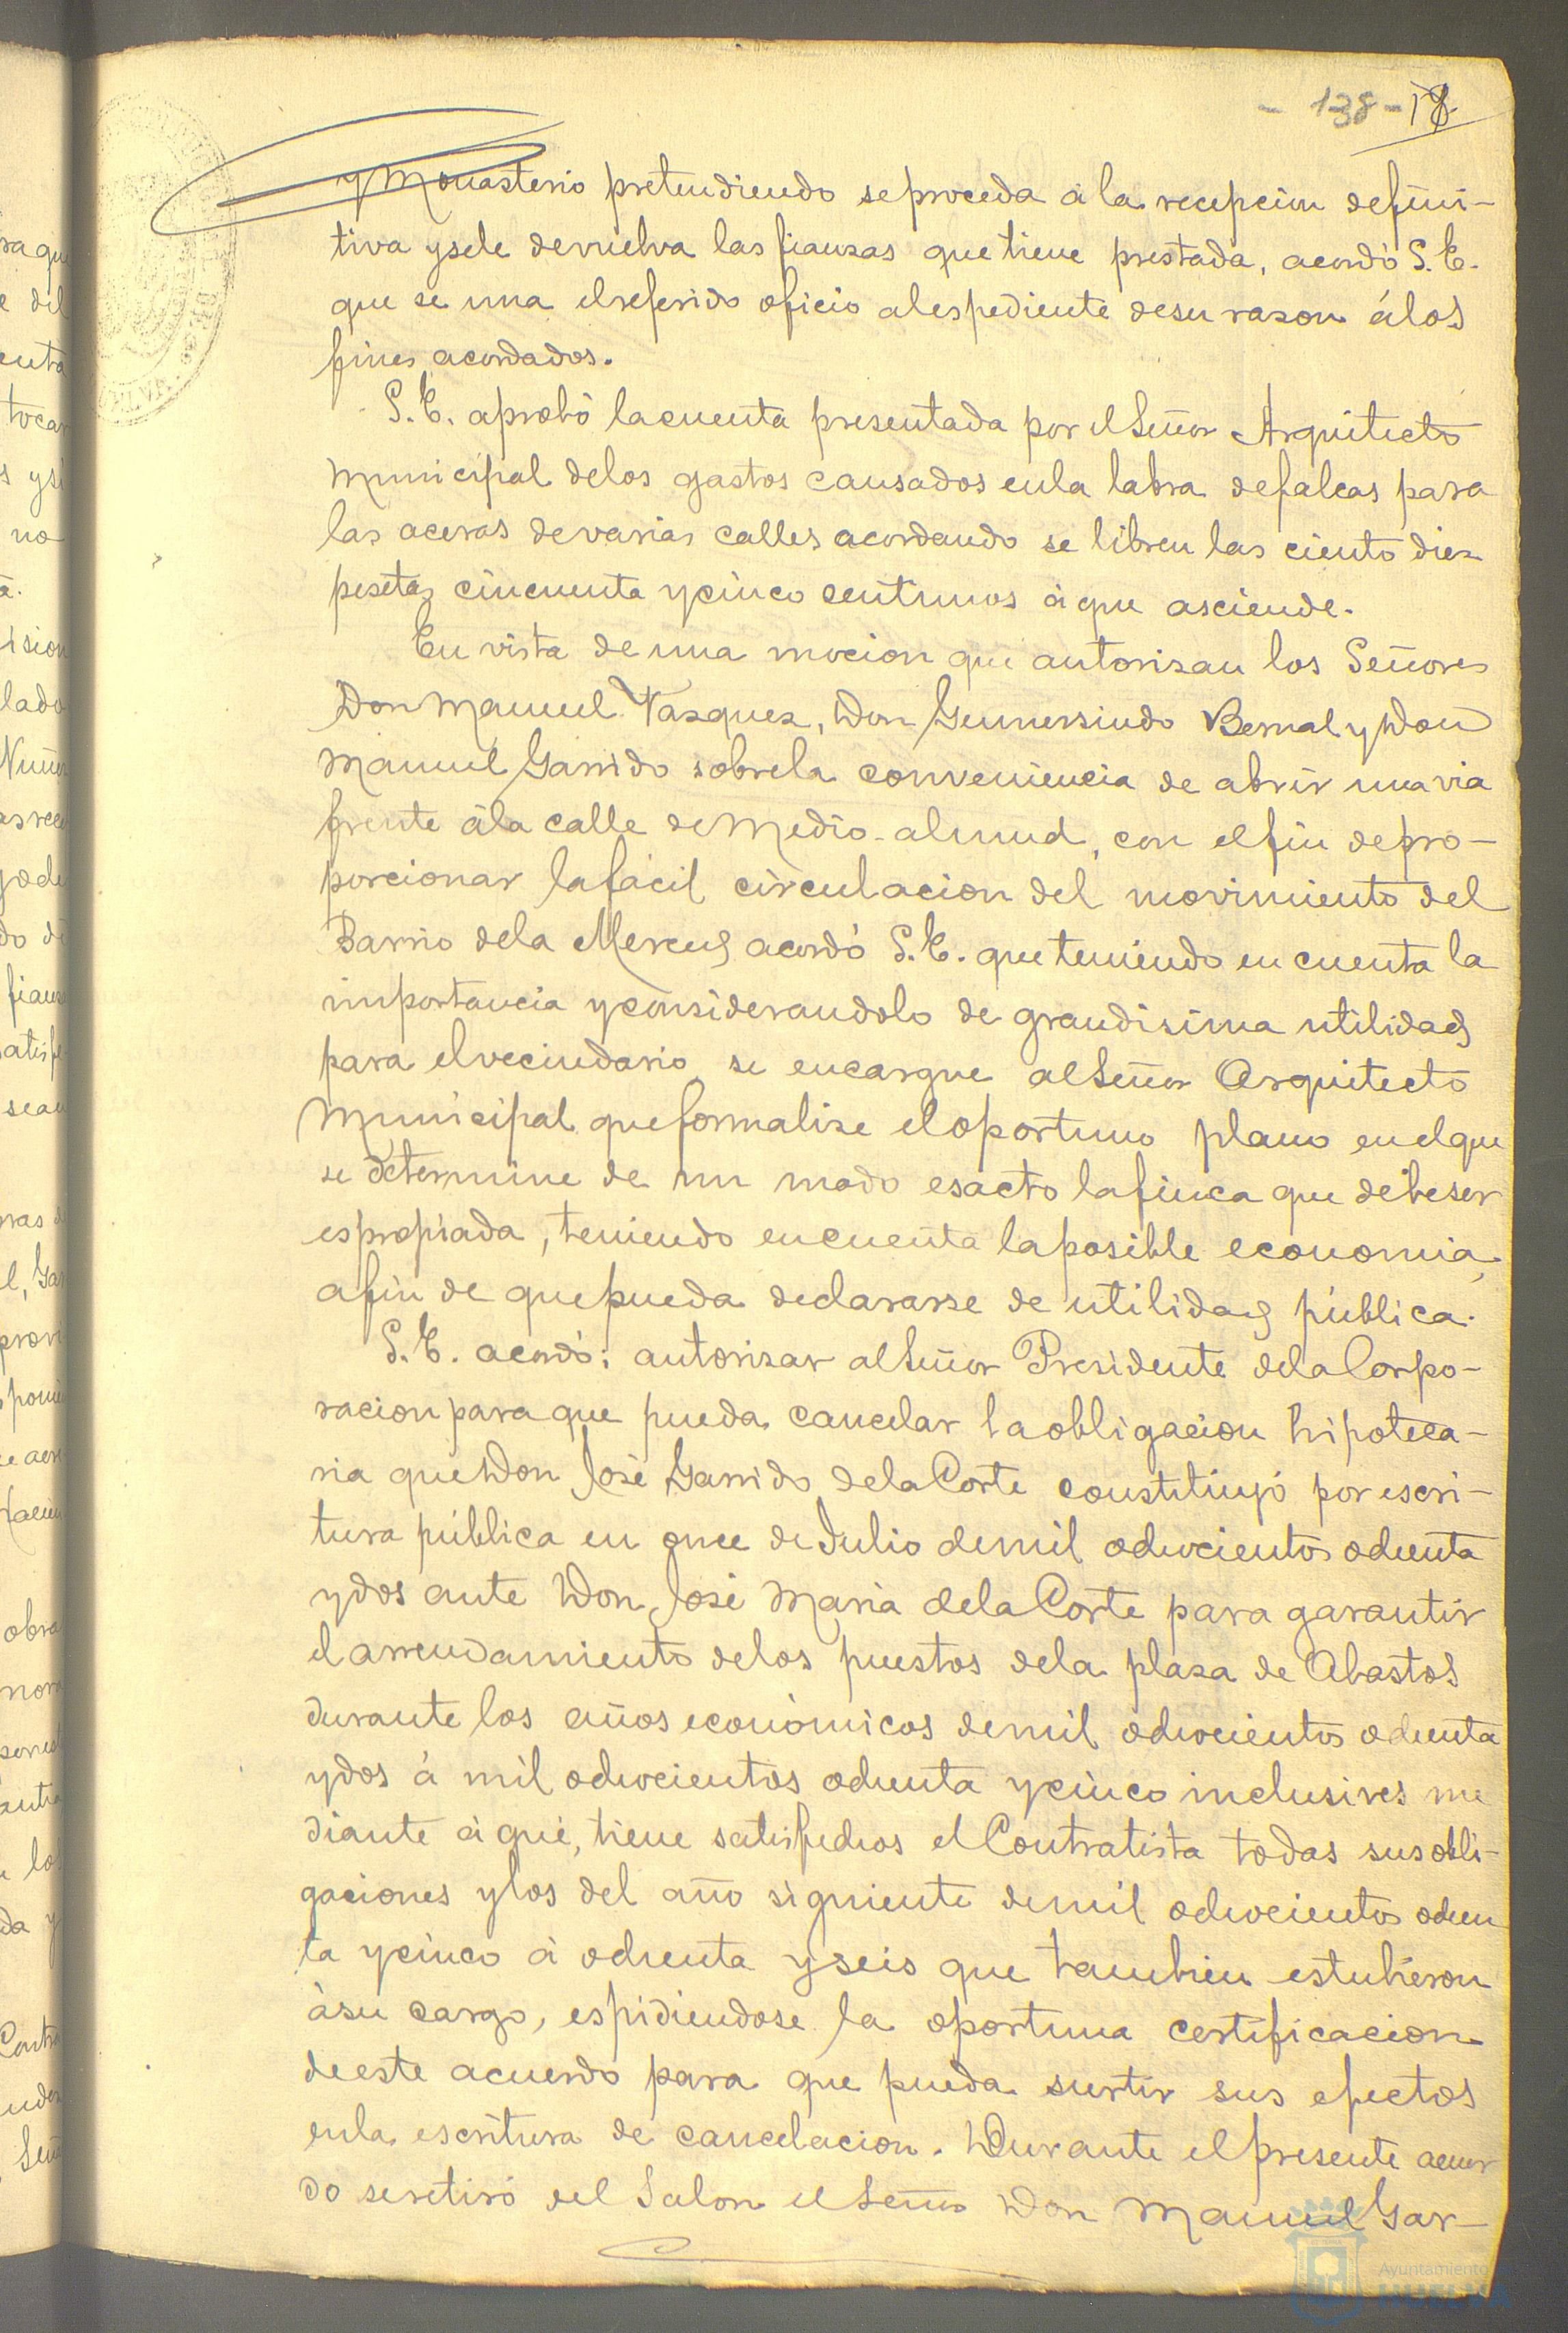 - 138 - 18
y Monasterio pretendiendo se proceda á la recepcion defini-
tiva y sele devuelva las fianzas que tiene prestada, acordó S. E.
que se una el referido oficio al espediente de su razon á los
fines acordados.
S. E. aprobó la cuenta presentada por el Señor Arquitecto
Municipal de los gastos causados en la labra de falcas para
las aceras de varias calles acordando se libren las ciento diez
pesetas cincuenta y cinco centimos á que asciende.
En vista de una mocion que autorizan los Señores
Don Manuel Vazquez, Don Gumersindo Bernal y Don
Manuel Garrido sobre la conveniencia de abrir una via
frente á la calle de Medio-almud, con el fin de pro-
porcionar la fácil circulacion del movimiento del
Barrio de la Merced acordó S. E. que teniendo en cuenta la
importancia y considerandolo de grandisima utilidad
para el vecindario se encargue al Señor Arquitecto
Municipal que formalize el oportuno plano en el que
se determine de un modo esacto la finca que debe ser
espropiada, teniendo en cuenta la posible economia,
a fin de que pueda declararse de utilidad pública.
S. E. acordó: autorizar al Señor Presidente de la Corpo-
racion para que pueda cancelar la obligacion hipoteca-
ria que Don José Garrido de la Corte constituyó por escri-
tura pública en once de Julio de mil ochocientos ochenta
y dos ante Don José Maria de la Corte para garantir
el arrendamiento de los puestos de la plaza de Abastos
durante los años económicos de mil ochocientos ochenta
y dos á mil ochocientos ochenta y cinco inclusives me
diante á que, tiene satisfechos el Contratista todas sus obli-
gaciones y los del año siguiente de mil ochocientos ochen
ta y cinco á ochenta y seis que tambien estubieron
á su cargo, espidiendose la oportuna certificacion
de este acuerdo para que pueda surtir sus efectos
en la escritura de cancelacion. Durante el presente acuer
do se retiró del Salon el Señor Don Manuel Gar-
Ayuntamiento de
HUELVA